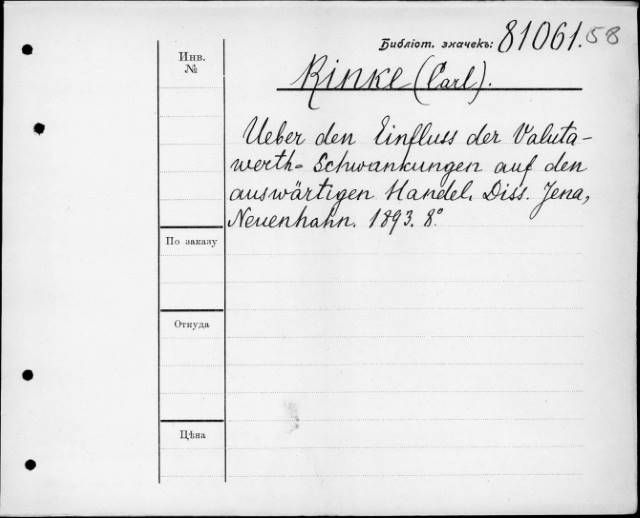 Библіот. значекъ: 81061.58
Инв.
№
Rinke (Carl).
Ueber den Einfluss der Valuta-
werth-Schwankungen auf den
auswärtigen Handel. Diss. Jena,
Neuenhahn. 1893. 8°
По заказу
Откуда
Цѣна